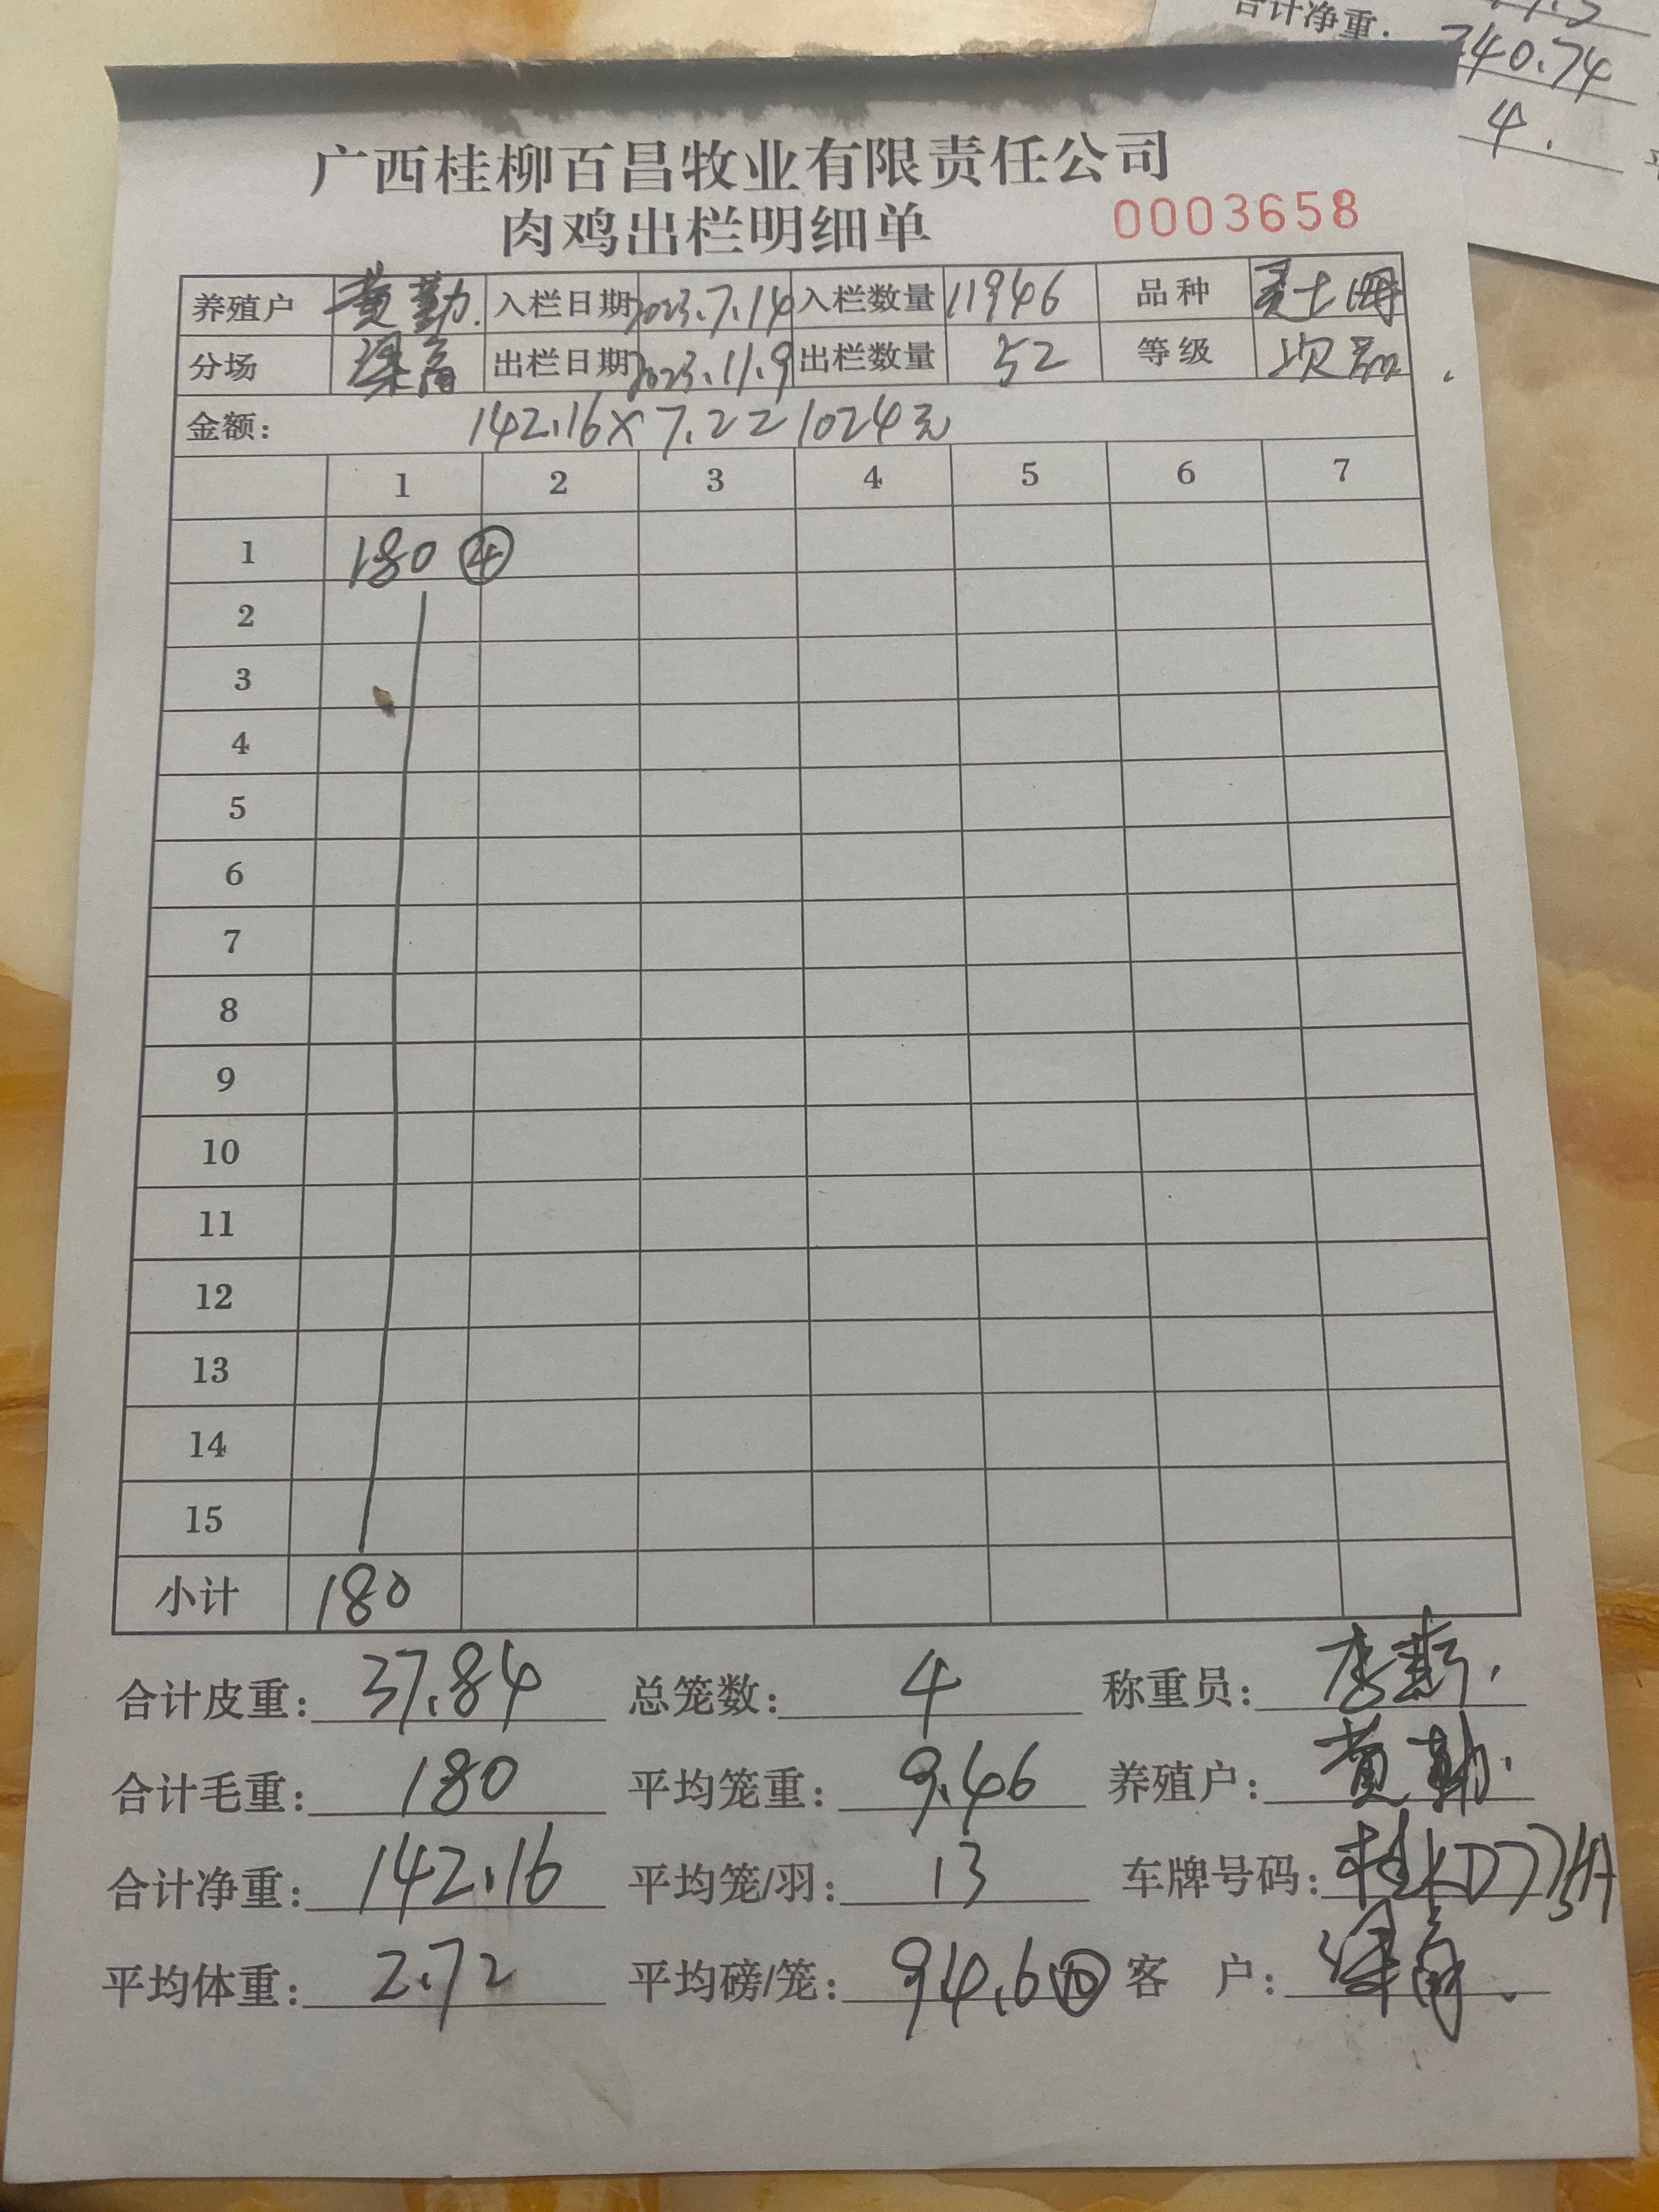 合计净重: 740.74
4.
广西桂柳百昌牧业有限责任公司
肉鸡出栏明细单 0003658
养殖户 黄勤. 入栏日期 2023.7.14 入栏数量 11946 品种
分场 出栏日期 2023.11.9 出栏数量 52 等级 次品
金额: 142.16×7.2=1024元
1 2 3 4 5 6 7
1 180 ④
2
3
4
5
6
7
8
9
10
11
12
13
14
15
小计 180
合计皮重: 37.84 总笼数: 4 称重员: 李燕.
合计毛重: 180 平均笼重: 9.46 养殖户: 黄勤.
合计净重: 142.16 平均笼/羽: 13 车牌号码:
平均体重: 2.72 平均磅/笼: 94.6 ⑩ 客 户: